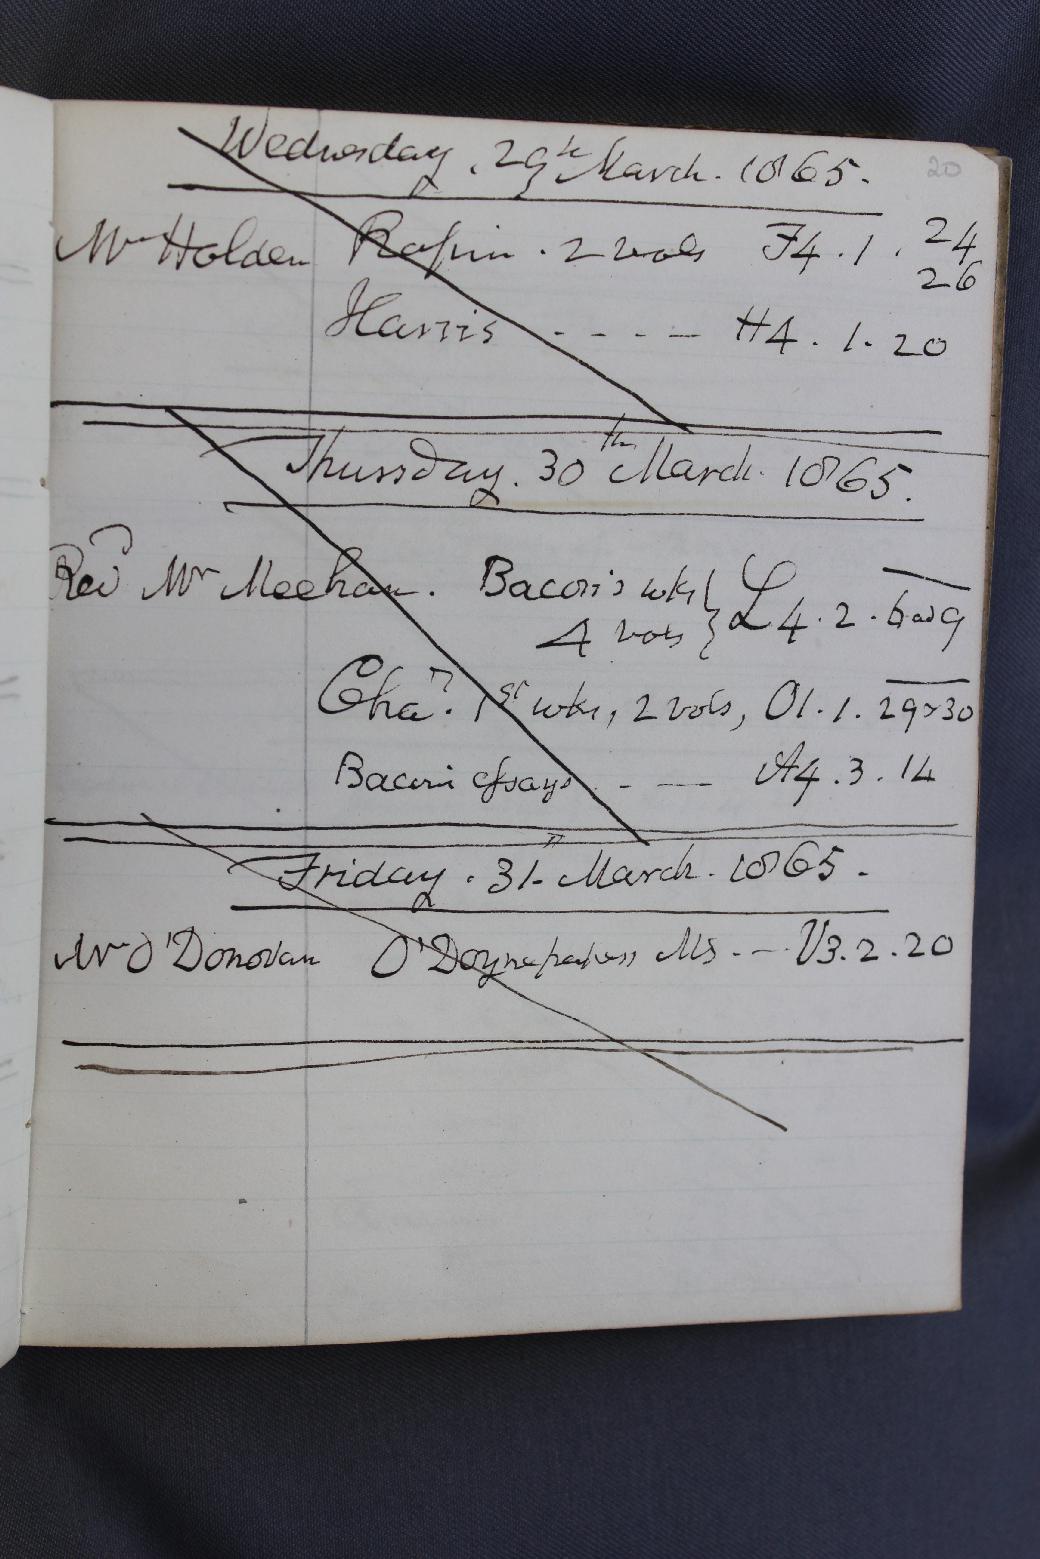 20
Wednesday. 29th March. 1865.
Mr Holden Rapin. 2 vols F4. 1. 24
26
Harris - - - - H4. 1. 20
Thursday. 30th March. 1865.
Revd Mr Meehan. Bacon's wks
4 vols } L4. 2. 6 a 9
Chas. 1st wks, 2 vols, O1. 1. 29 & 30
Bacon's essays - - A4. 3. 14
Friday. 31. March. 1865.
Mr O'Donovan O' MS. - - V3. 2. 20